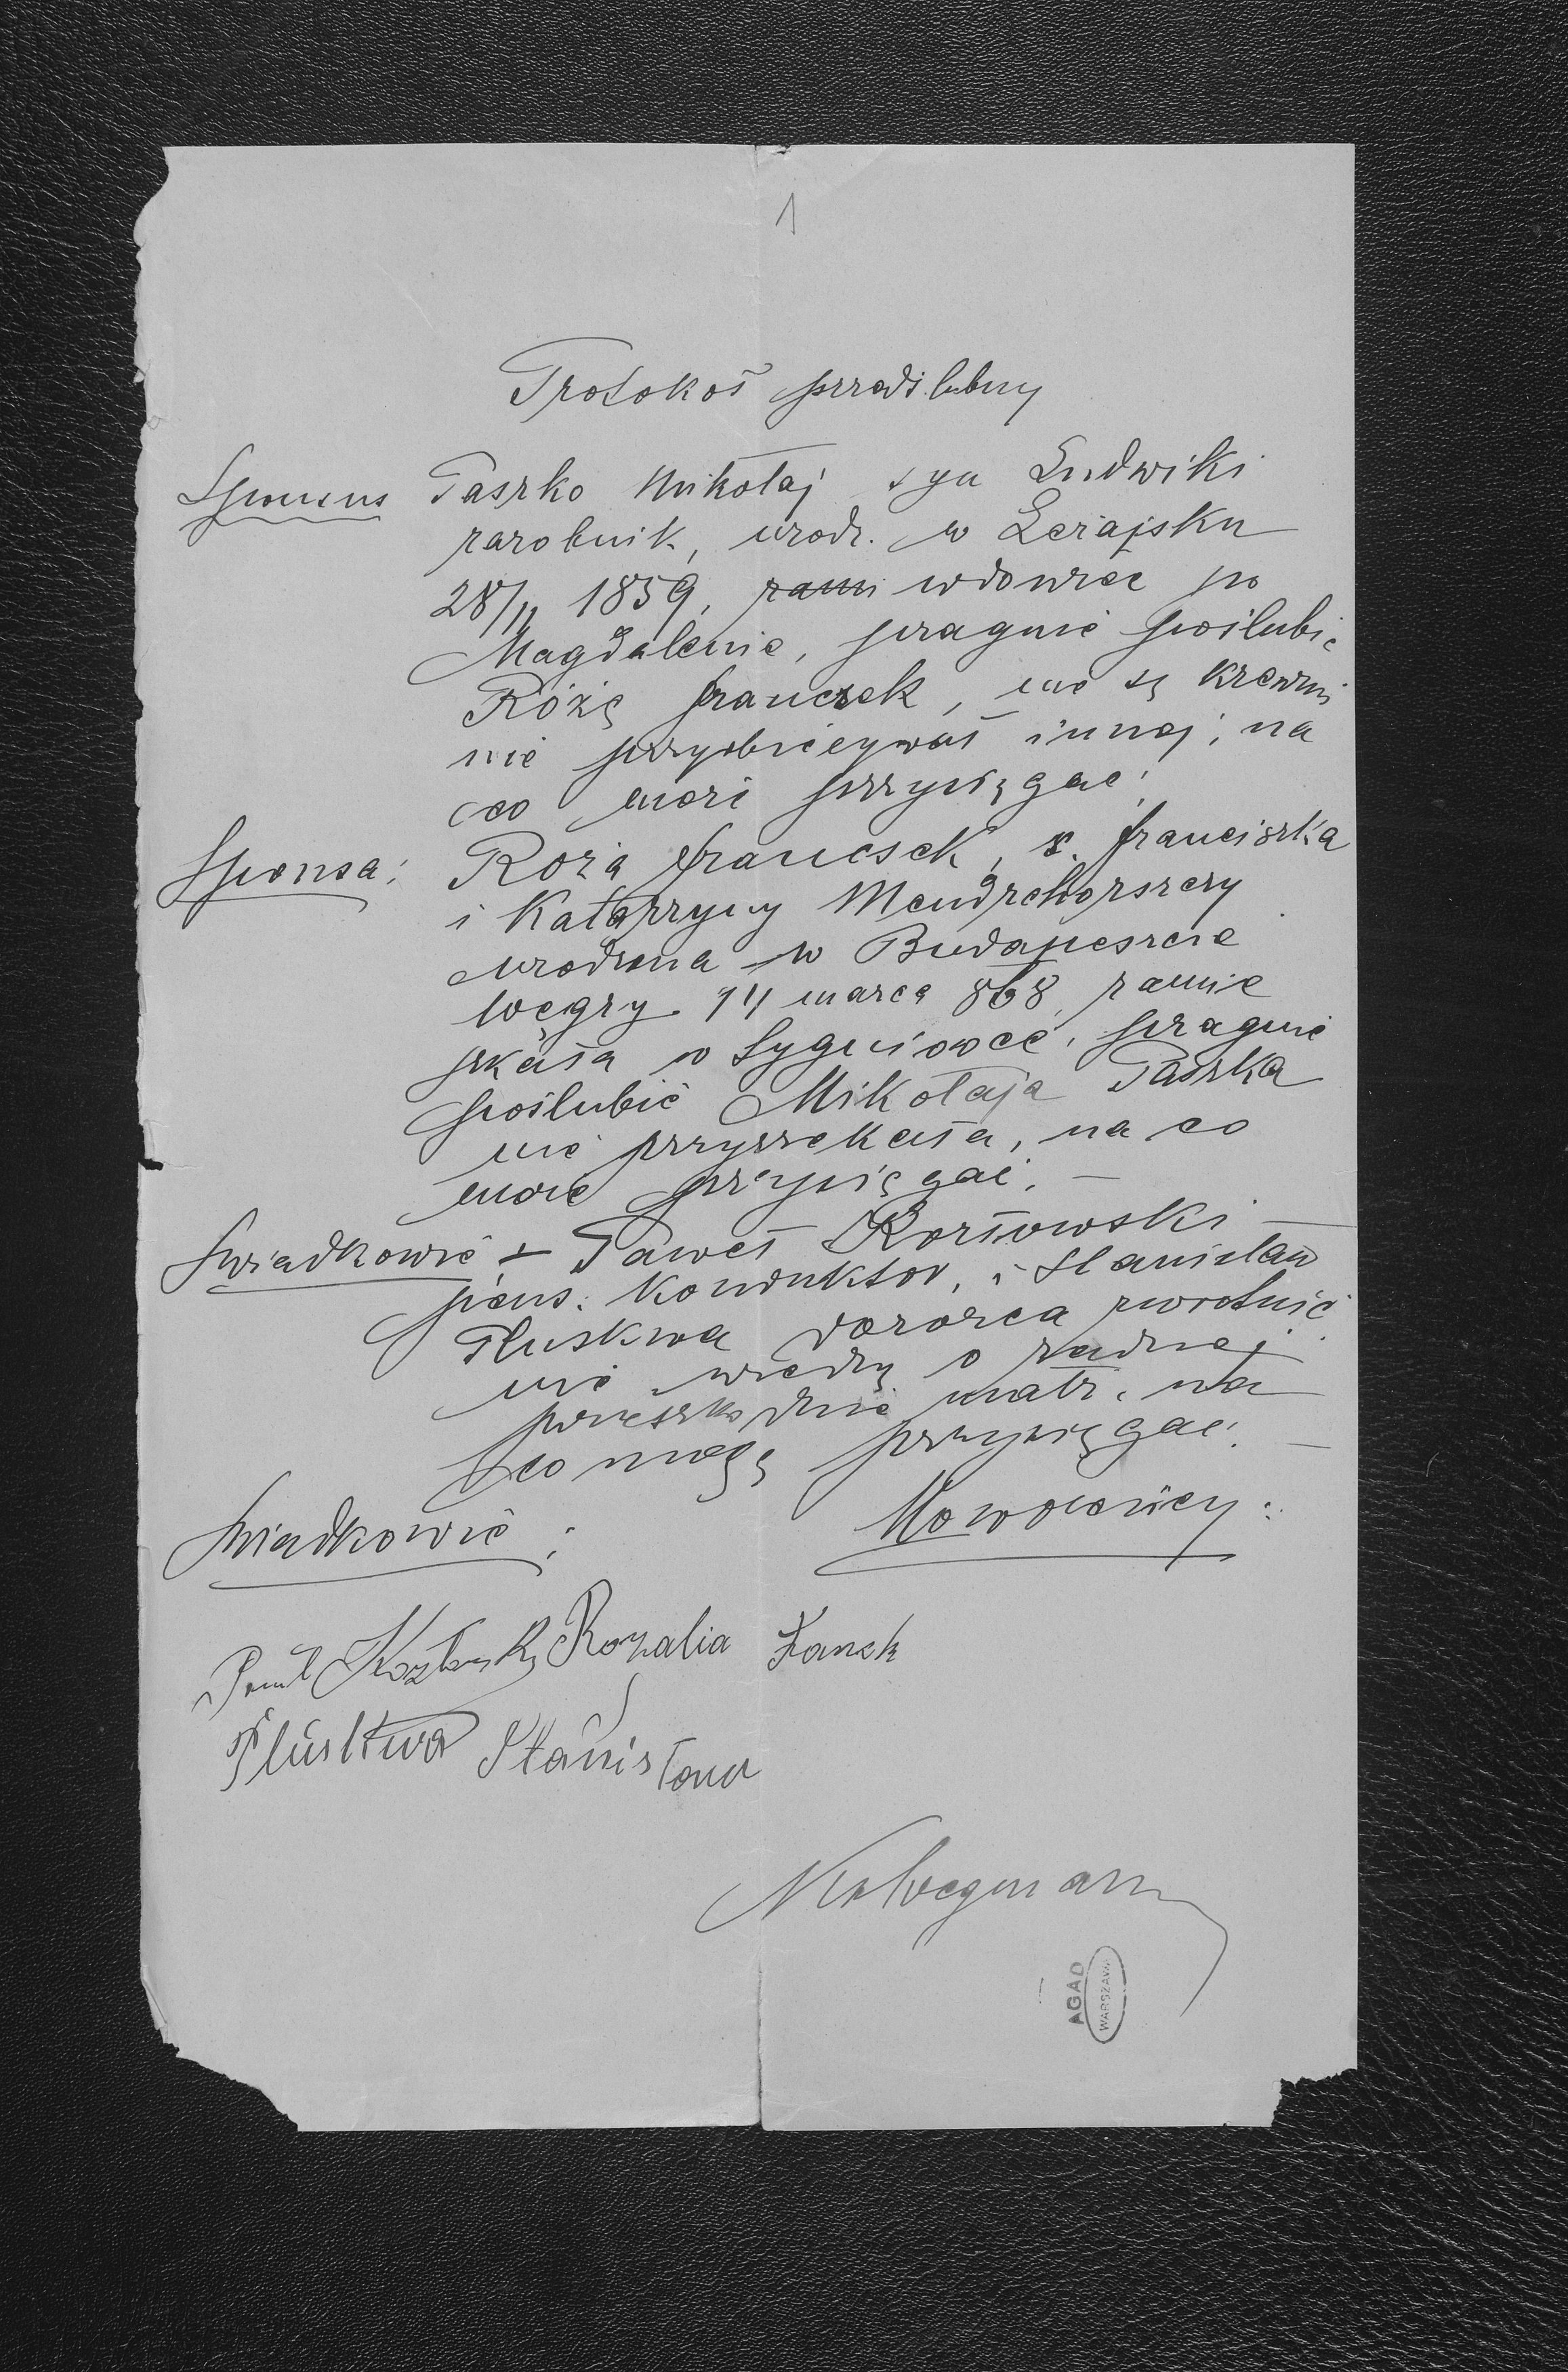 1
Protokoł przedślubny
Sponsus Paszko Mikołaj syn Ludwiki
zarobnik, urodz. w Leżajsku
28/11 1859, zami wdowiec po
Magdalenie, pragnie poślubić
Różę Franczek, nie są krewni
nie przyobiecywał innej, na
co może przysięgać.
Sponsa: Roża Francsek, c. Franciszka
i Katarzyny
urodzona w Budapeszcie
Węgry 14 marca 868, zamie
szkała w Sygniowce, pragnie
poślubić Mikołaja Paszka
nie przyrzekała, na co
może przysięgać. —
Świadkowie + Paweł Kozłowski —
pens. konduktor, i Stanisław
Pluskwa dozorca zwrotnic
nie wiedzą o żadnej
przeszkodzie matr. na
co mogą przysięgać. —
Świadkowie: Nowożeńcy:
Paweł Kozłowski Rozalia
Pluskwa Stanisław
AGAD
WARSZAWA